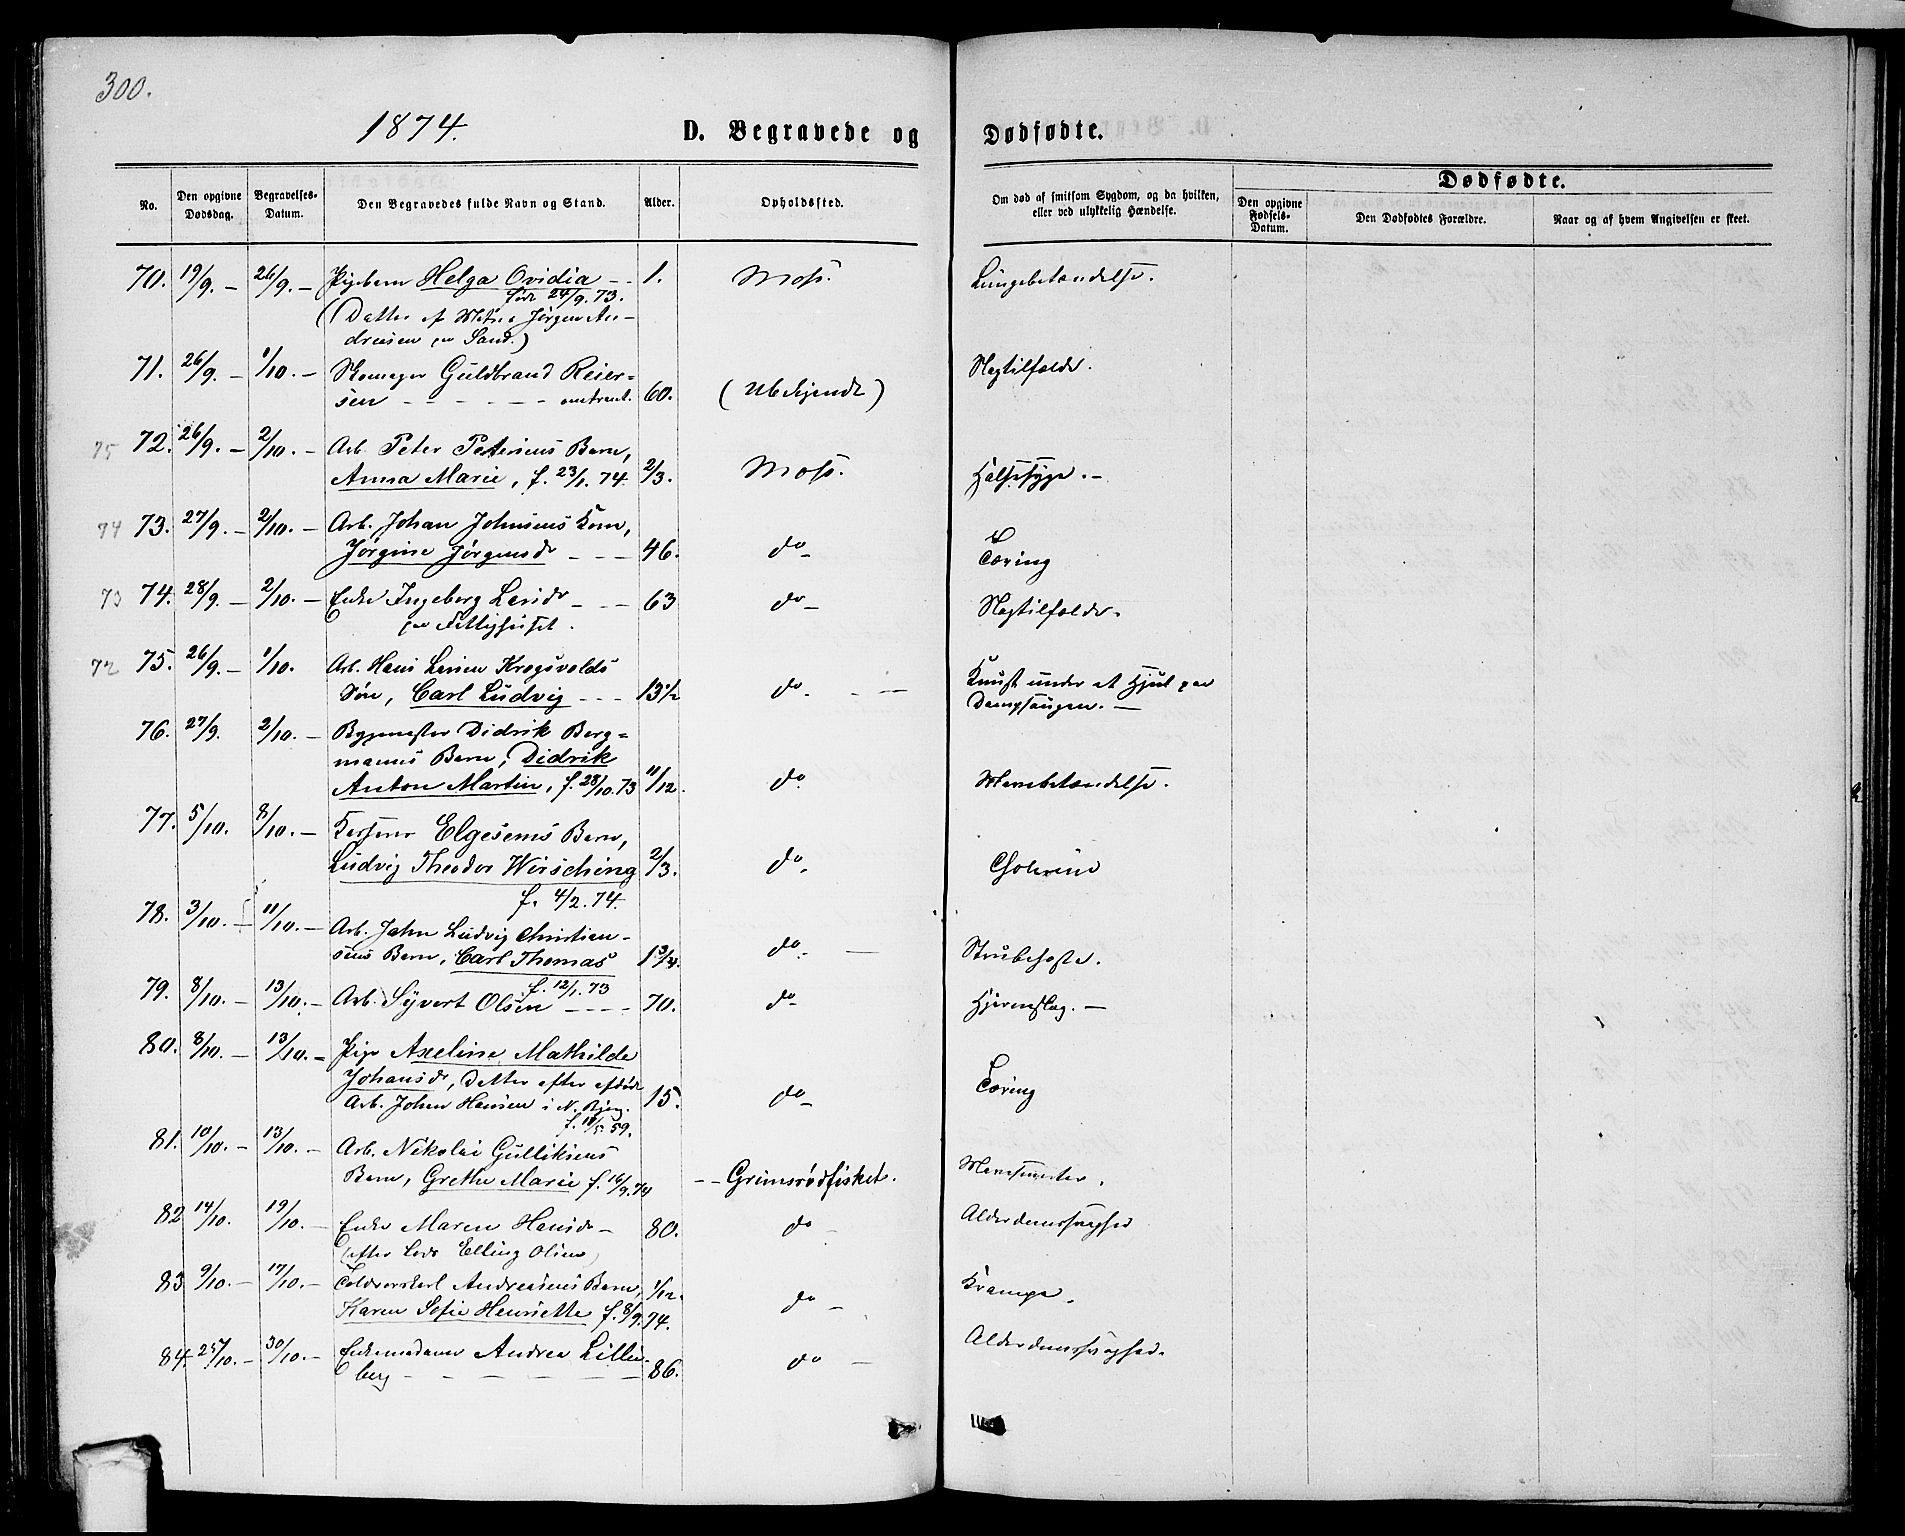 300.
1874.
D. Begravede og Dødfødte.
No.
Den opgivne Dødsdag.
Begravelses-Datum.
Den Begravedes fulde Navn og Stand.
Alder.
Opholdssted.
Om død af smitsom Sygdom, og da hvilken, eller ved ulykkelig Hændelse.
Dødfødte.
Den opgivne Fødsels-Datum.
Den Dødfødtes Forældre.
Naar og af hvem Angivelsen er skeet.
70. 19/9. – 26/9. – Pigebarn Helga Ovidia -- 1. Moss. Lungebetændelse.
født 24/9. 73.
(Datter af Jørgen An-
dreasen paa Sand.)
71. 26/9. – 1/10. – Skomager Guldbrand Reier- Slagtilfælde.
sen - - - - - omtrent. 60. (Ubekjendt)
75 72. 26/9. – 2/10. – Arb. Peter Petersens Barn,
Anna Marie, f. 23/1. 74. 2/3. Moss. Halssyge. –
74 73. 27/9. – 2/10. – Arb. Johan Johnsens Kone,
Jørgine Jørgensdr - - - 46. do – Tæring
73 74. 28/9. – 2/10. – Enke Ingeborg Larsdr - - - 63 do – Slagtilfælde.
paa Fattighuset.
72 75. 26/9. – 1/10. Arb. Hans Larsen Krogsvolds Knust under et Hjul paa
Søn, Carl Ludvig - - - 13 1/2 do. – – Dampsaugen. –
76. 27/9. 2/10. – Bygmester Didrik Berg-
manns Barn, Didrik
Anton Martin, f. 28/10. 73 11/12. do. Mavebetændelse.
77. 5/10. 8/10. – Elgesems Barn,
Ludvig Theodor Wirsching 2/3. do. Cholerine
f. 4/2. 74.
78. 3/10. – 11/10. – Arb. John Ludvig Christian-
sens Barn, Carl Thomas 1 3/4. do. – Strubehoste.
f. 12/1. 73
79. 8/10. – 13/10. – Arb. Syvert Olsen - - - - 70. do – Hjerneslag. –
80. 8/10. – 13/10. – Pige Axeline Mathilde
Johansdr, Datter efter afdøde
Arb. Johan Hansen i N. Bjerg. 15. do – Tæring
f. 18/5. 59.
81. 10/10. – 13/10. – Arb. Nikolai Gulliksens
Barn, Grethe Marie f. 16/9. 74 -- Grimsrødfisket.
82 14/10. 19/10. – Enke Maren Hansdr – 80. do – Alderdomssvaghed
(efter Lods Elling Olsen)
83 9/10. – 17/10. – Toldrorskarl Andreasens Barn, 1/12.
Karen Sofie Henriette f. 8/9. 74. do – Krampe.
84. 25/10. – 30/10. – Enkemadame Andrea Lillie- Alderdomssvaghed.
berg - - - - - - 86. do –